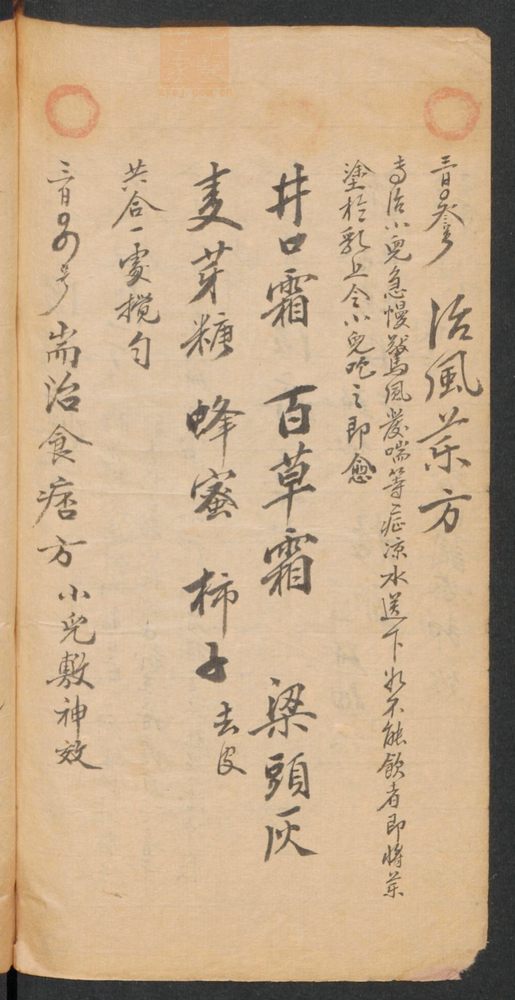 三百〇叁号 治風茶方
专治小兒急慢驚風發喘等症凉水送下如不能飲者即將茶
塗於乳上令小兒吃之即愈
井口霜 百草霜 梁頭灰
麦芽糖 蜂蜜 柿子去皮
共合一處搅匀
三百〇四号 耑治食痞方 小兒敷神效